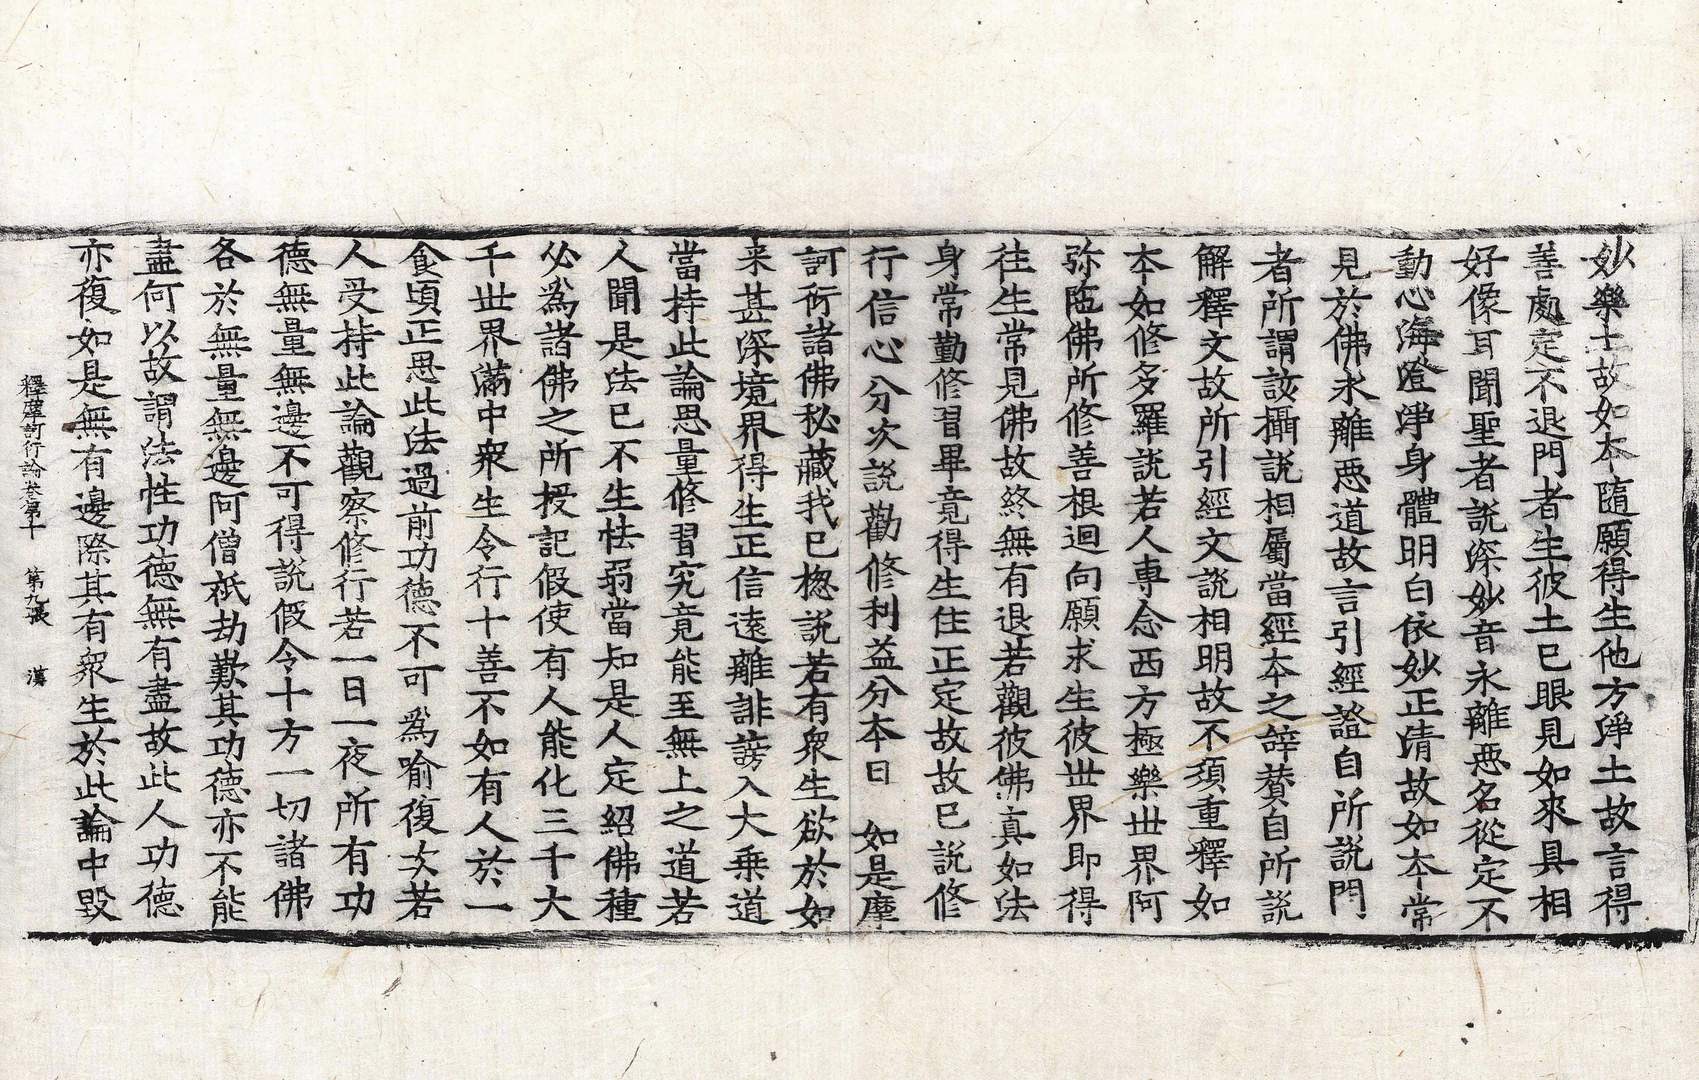 妙樂土故如本隨願得生他方淨土故言得
善處定不退門者生彼土已眼見如來具相
好像耳聞聖者說深妙音永離惡名從定不
動心海澄淨身體明白依妙正清故如本常
見於佛永離惡道故言引經證自所說門
者所謂該攝說相屬當經本之辞賛自所說
解釋文故所引經文說相明故不須重釋如
本如修多羅說若人專念西方極樂世界阿
弥陁佛所修善根迴向願求生彼世界即得
往生常見佛故終無有退若觀彼佛真如法
身常勤修習畢竟得生住正定故故已說修
行信心分次說勸修利益分本曰 如是摩
訶衍諸佛秘藏我已揔說若有衆生欲於如
来甚深境界得生正信遠離誹謗入大乗道
當持此論思量修習究竟能至無上之道若
人聞是法已不生怯弱當知是人定紹佛種
必爲諸佛之所授記假使有人能化三千大
千世界滿中衆生令行十善不如有人於一
食頃正思此法過前功德不可爲喻復次若
人受持此論觀察修行若一日一夜所有功
德無量無邊不可得說假令十方一切諸佛
各於無量無邊阿僧祇劫歎其功德亦不能
盡何以故謂法性功德無有盡故此人功德
亦復如是無有邊際其有衆生於此論中毀
釋摩訶衍論卷第十 第九張 漢